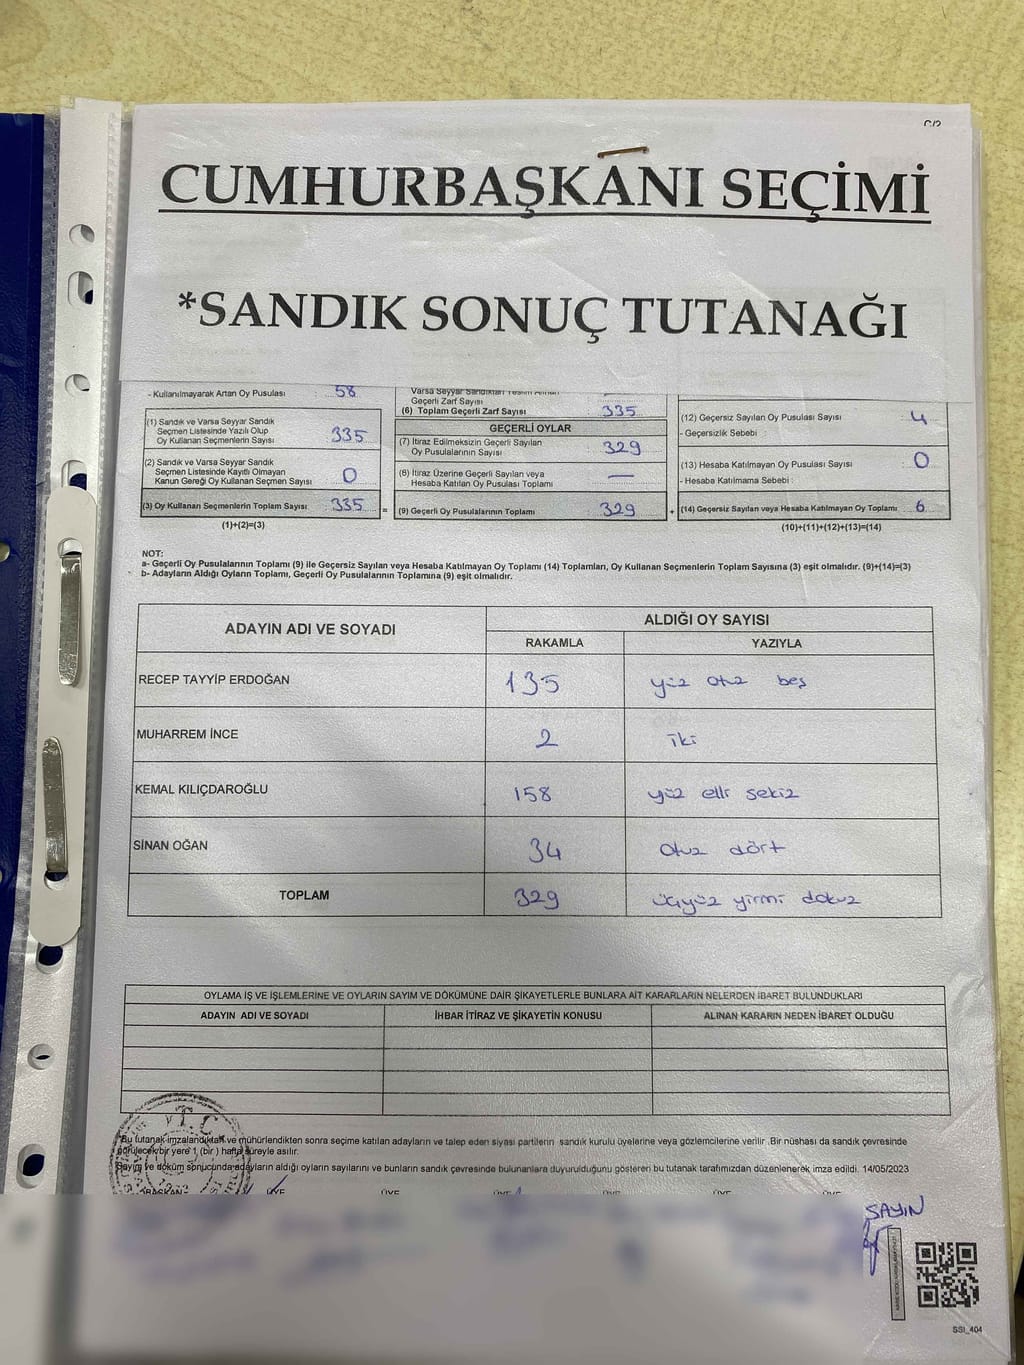 CUMHURBAŞKANI SEÇİMİ
*SANDIK SONUÇ TUTANAĞI
- Kullanılmayarak Artan Oy Pusulası : 58
(1) Sandık ve Varsa Seyyar Sandık
Seçmen Listesinde Yazılı Olup
Oy Kullanan Seçmenlerin Sayısı : 335
(2) Sandık ve Varsa Seyyar Sandık
Seçmen Listesinde Kayıtlı Olmayan
Kanun Gereği Oy Kullanan Seçmen Sayısı : 0
(3) Oy Kullanan Seçmenlerin Toplam Sayısı : 335
(1)+(2)=(3)
=
Varsa Seyyar Sandıktan
Geçerli Zarf Sayısı : —
(6) Toplam Geçerli Zarf Sayısı : 335
GEÇERLİ OYLAR
(7) İtiraz Edilmeksizin Geçerli Sayılan
Oy Pusulalarının Sayısı : 329
(8) İtiraz Üzerine Geçerli Sayılan veya
Hesaba Katılan Oy Pusulası Toplamı : —
(9) Geçerli Oy Pusulalarının Toplamı : 329
+
(12) Geçersiz Sayılan Oy Pusulası Sayısı : 4
- Geçersizlik Sebebi :
(13) Hesaba Katılmayan Oy Pusulası Sayısı : 0
- Hesaba Katılmama Sebebi :
(14) Geçersiz Sayılan veya Hesaba Katılmayan Oy Toplamı : 6
(10)+(11)+(12)+(13)=(14)
NOT:
a- Geçerli Oy Pusulalarının Toplamı (9) ile Geçersiz Sayılan veya Hesaba Katılmayan Oy Toplamı (14) Toplamları, Oy Kullanan Seçmenlerin Toplam Sayısına (3) eşit olmalıdır. (9)+(14)=(3)
b- Adayların Aldığı Oyların Toplamı, Geçerli Oy Pusulalarının Toplamına (9) eşit olmalıdır.
ADAYIN ADI VE SOYADI ALDIĞI OY SAYISI
RAKAMLA YAZIYLA
RECEP TAYYİP ERDOĞAN 135 yüz otuz beş
MUHARREM İNCE 2 iki
KEMAL KILIÇDAROĞLU 158 yüz elli sekiz
SİNAN OĞAN 34 otuz dört
TOPLAM 329 üçyüz yirmi dokuz
OYLAMA İŞ VE İŞLEMLERİNE VE OYLARIN SAYIM VE DÖKÜMÜNE DAİR ŞİKAYETLERLE BUNLARA AİT KARARLARIN NELERDEN İBARET BULUNDUKLARI
ADAYIN ADI VE SOYADI İHBAR İTİRAZ VE ŞİKAYETİN KONUSU ALINAN KARARIN NEDEN İBARET OLDUĞU
T.C.
Bu tutanak imzalandıktan ve mühürlendikten sonra seçime katılan adayların ve talep eden siyasi partilerin sandık kurulu üyelerine veya gözlemcilerine verilir .Bir nüshası da sandık çevresinde
görülecek bir yere 1 (bir ) hafta süreyle asılır.
Sayım ve döküm sonucunda adayların aldığı oyların sayılarını ve bunların sandık çevresinde bulunanlara duyurulduğunu gösteren bu tutanak tarafımızdan düzenlenerek imza edildi. 14/05/2023
BAŞKAN ÜYE ÜYE ÜYE ÜYE ÜYE ÜYE
SAYIN
SSI_404